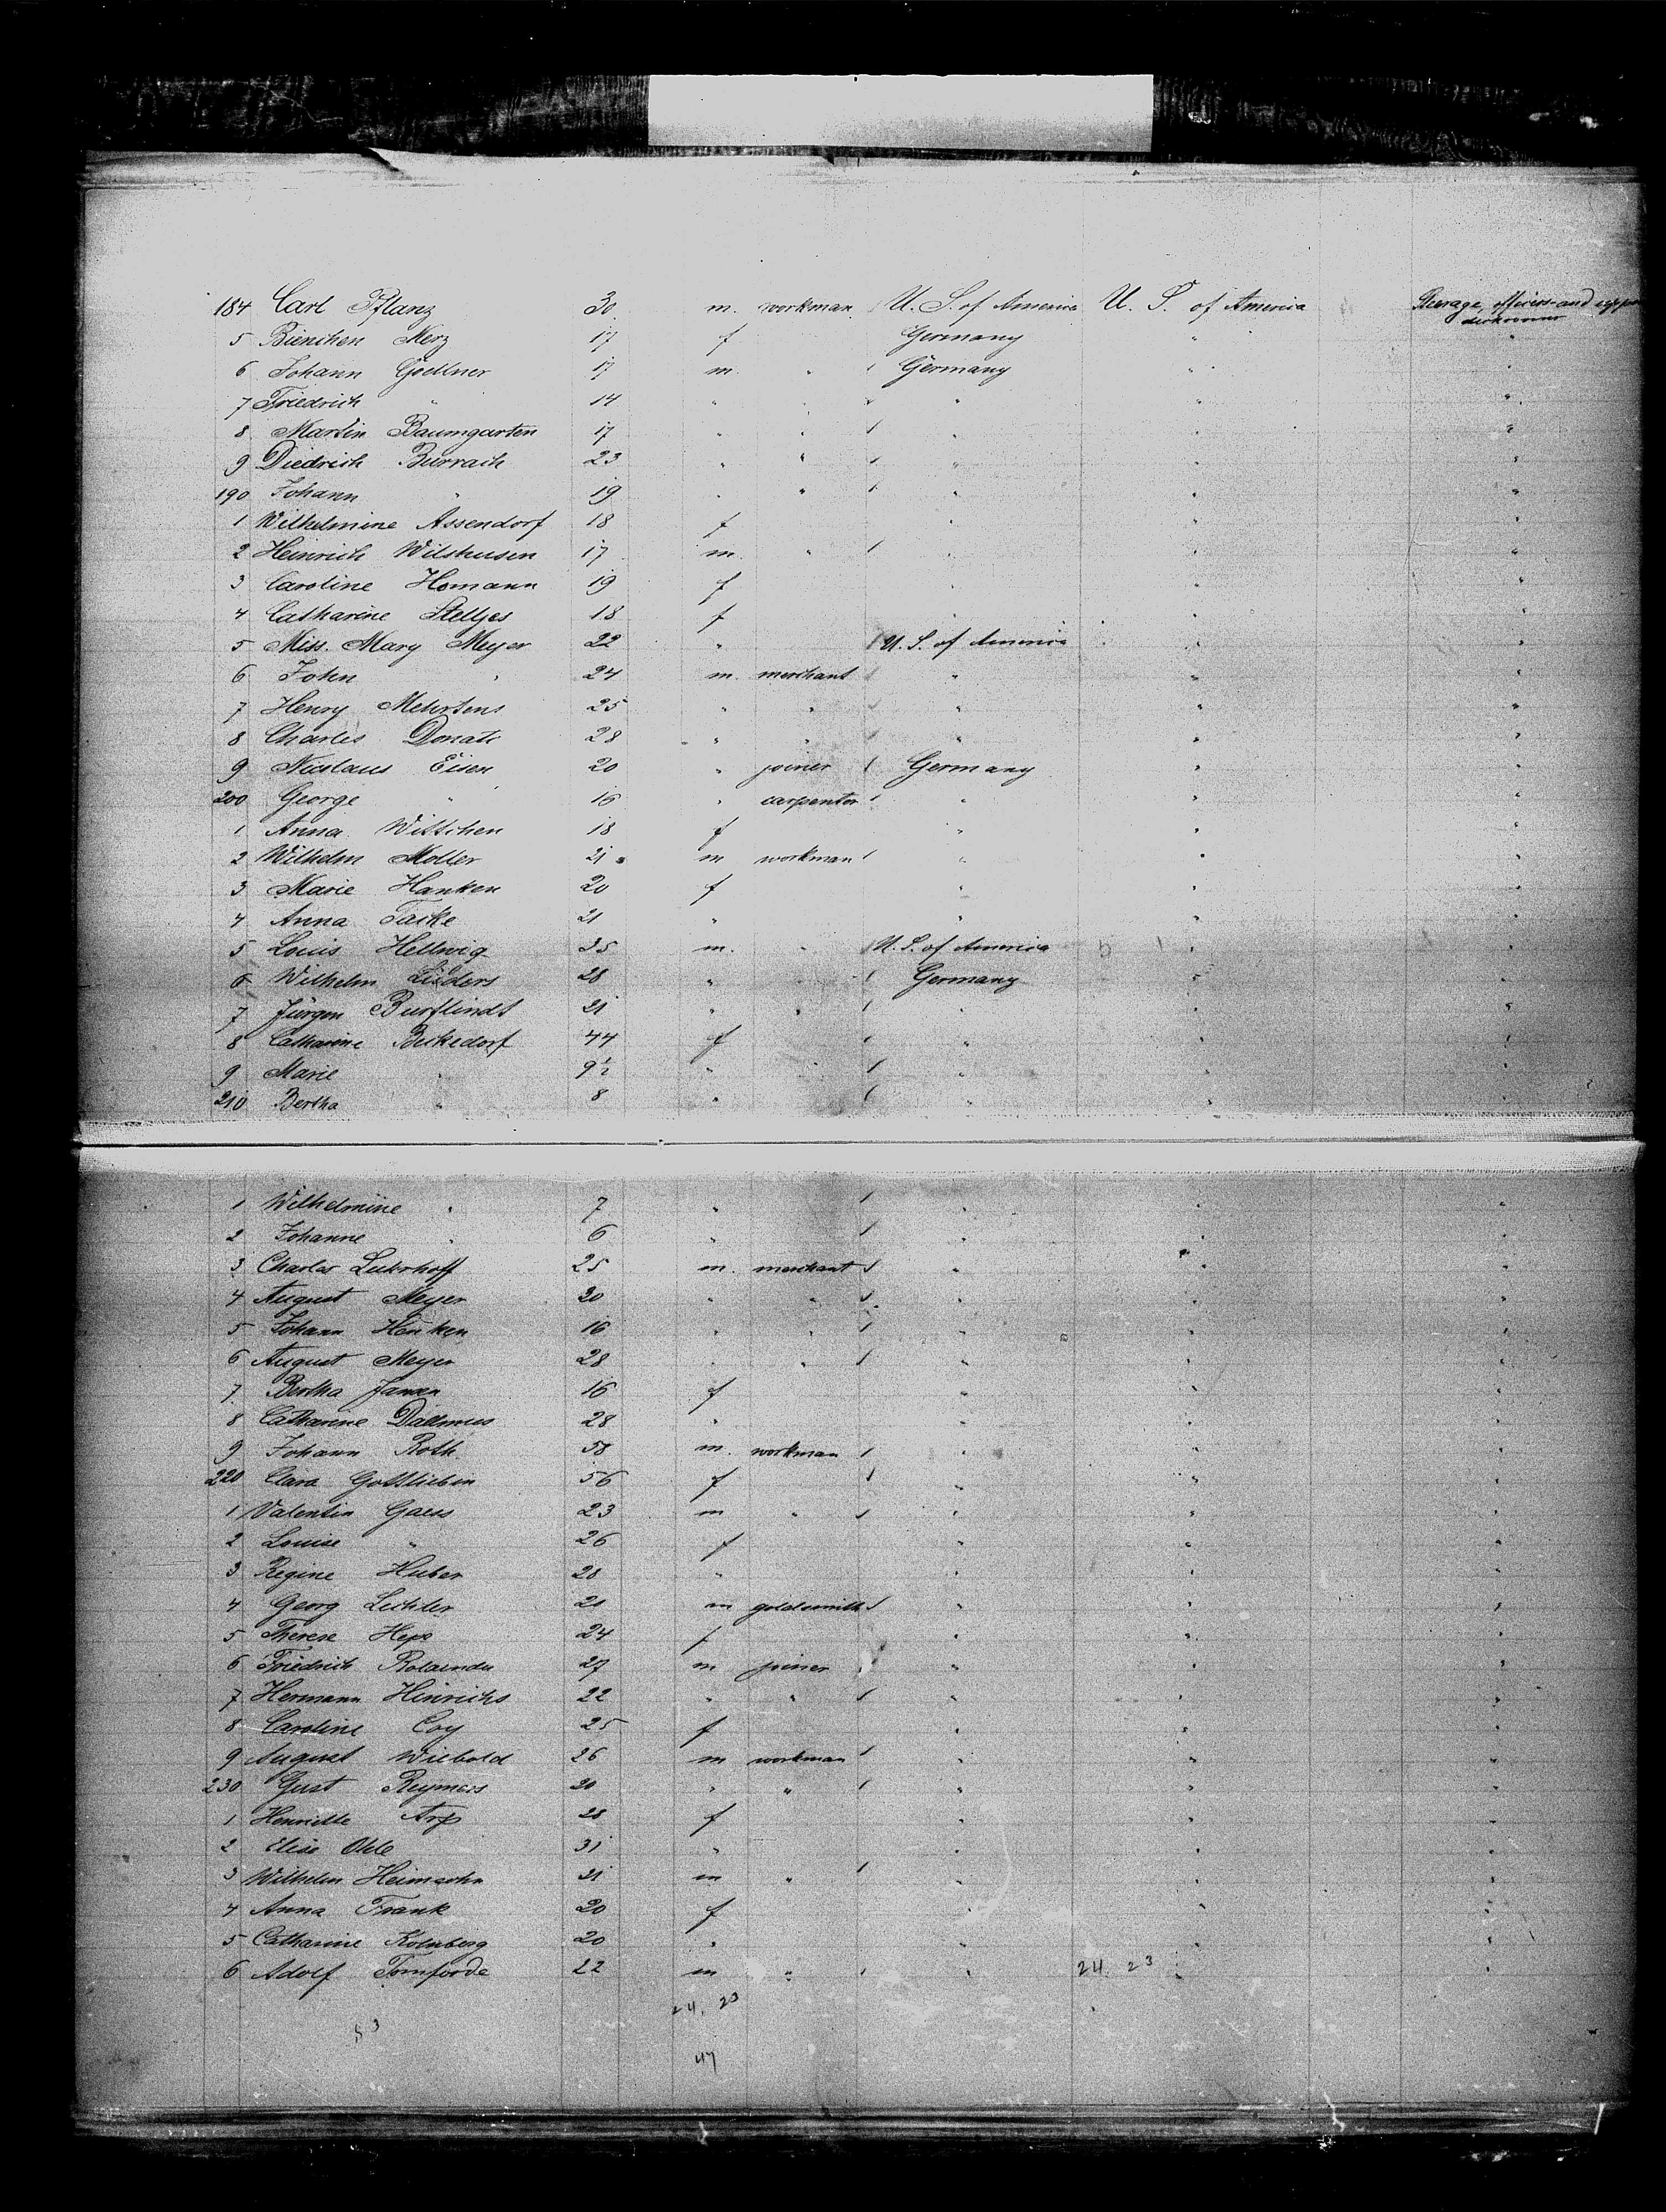 184 Carl Pflanz 30 m. workman U. S. of America U. S. of America Steerage, officers and upper
5 Bienchen Merz 17 f Germany "
6 Johann Goellner 17 m. " Germany " "
7 Friedrich " 14 " " " " "
8 Martin Baumgarten 17 " " " " "
9 Diedrich Burrach 23 " " " " "
190 Johann " 19 " " " " "
1 Wilhelmine Assendorf 18 f " " "
2 Heinrich Wilshusen 17 m. " " " "
3 Caroline Homann 19 f " " "
4 Catharine Stelljes 18 f " " "
5 Miss. Mary Meyer 22 " U. S. of America " "
6 John " 24 m. merchant " " "
7 Henry Mehrtens 25 " " " " "
8 Charles Donati 28 " " " " "
9 Nicolaus Eisen 20 " joiner Germany " "
200 George " 16 " carpenter " " "
1 Anna Wittchen 18 f " " "
2 Wilhelm Moller 21 m workman " " "
3 Marie Hanken 20 f " " "
4 Anna Facke 21 " " " "
5 Louis Hellwig 25 m. " U. S. of America " "
6 Wilhelm Lüders 28 " " Germany " "
7 Jürgen Burflindt 21 " " " " "
8 Catharine Beckedorf 44 f " " "
9 Marie " 9½ " " " "
210 Bertha " 8 " " " "
1 Wilhelmine " 7 " " " "
2 Johanne " 6 " " " "
3 Charles Luhrhoff 25 m. merchant " " "
4 August Meyer 20 " " " " "
5 Johann Henken 16 " " " " "
6 August Meyer 28 " " " " "
7 Bertha Jansen 16 f " " "
8 Catharine 28 " " " "
9 Johann Roth 58 m. workman " " "
220 Clara Gottlieben 56 f " " "
1 Valentin Gaess 23 m " " " "
2 Louise " 26 f " " "
3 Regine Huber 28 " " " "
4 Georg Lechler 21 m goldsmith " " "
5 Therese Heps 24 f " " "
6 Friedrich 27 m joiner " " "
7 Hermann Hinrichs 22 " " " " "
8 Caroline Coy 25 f " " "
9 August Wiebold 26 m workman " " "
230 Gust Reymers 20 " " " " "
1 Henriette Arp 28 f " " "
2 Elise Ohle 31 " " " "
3 Wilhelm Heimsohn 21 m " " " "
4 Anna Frank 20 f " " "
5 Catharine Kornberg 20 " " " "
6 Adolf Tomforde 22 m " " 24. 23 "
24. 23
53
47